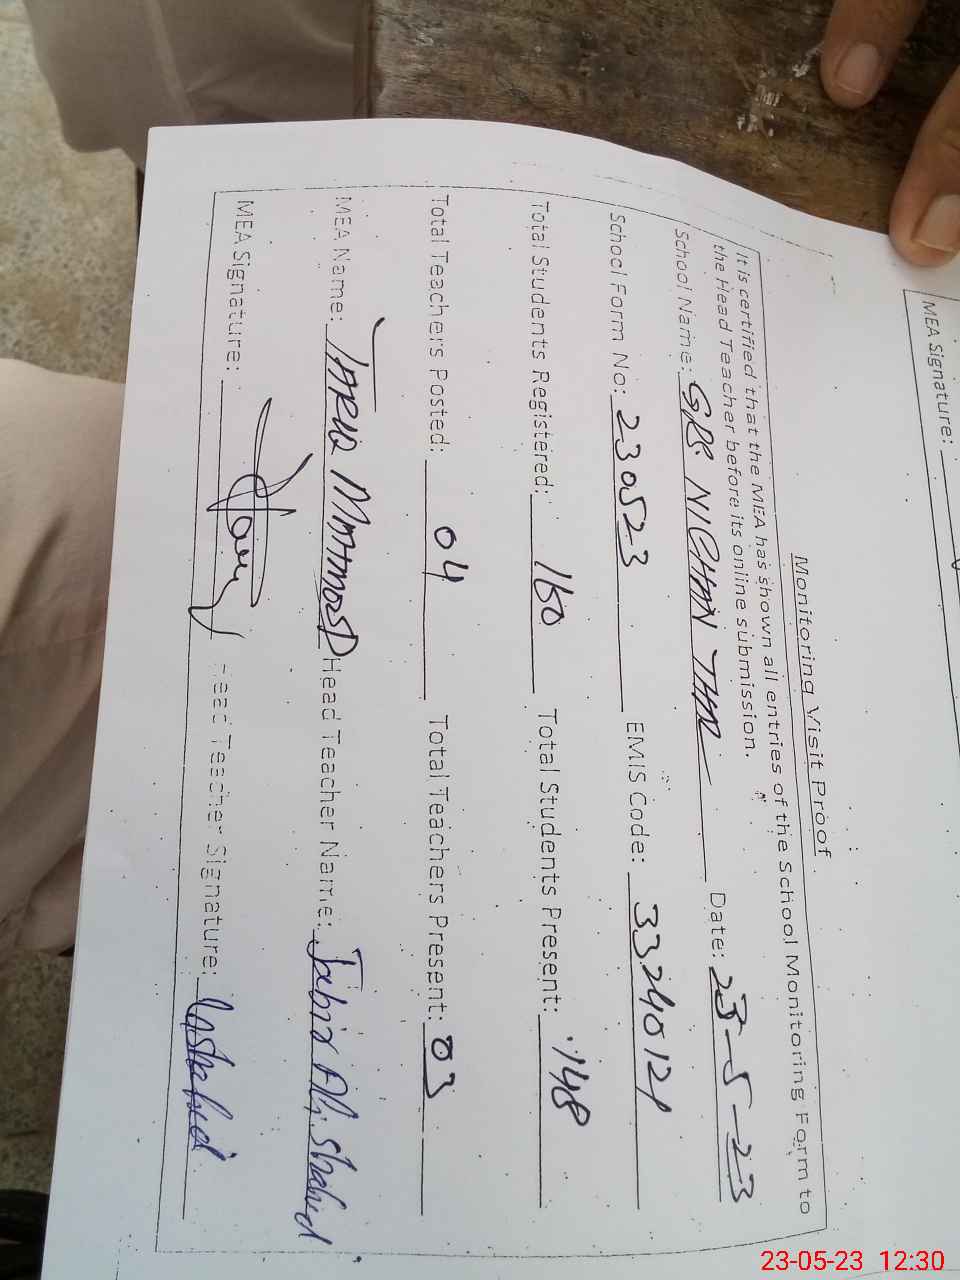 MEA Signature:
Monitoring Visit Proof
It is certified that the MEA has shown all entries of the School Monitoring Form to
the Head Teacher before its online submission.
School Name: GPS NICHAN THAR Date: 23-5-23
School Form No: 230523 EMIS Code: 33240121
Total Students Registered: 160 Total Students Present: 148
Total Teachers Posted: 04 Total Teachers Present: 03
MEA Name: TARIQ MAHMOOD Head Teacher Name: Jabir Ali Shahid
MEA Signature: Head Teacher Signature:
23-05-23 12:30